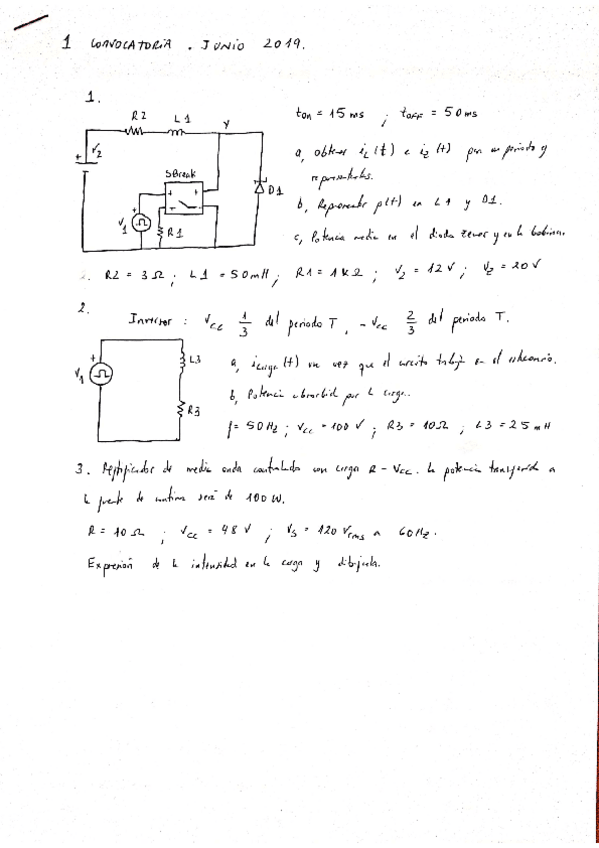 1 CONVOCATORIA . JUNIO 2019.
1.
ton = 15 ms ; toff = 50 ms
R2 L1 Y
a, obtener iL(t) e iz(t) para un periodo y
representarlos.
V2
SBreak
D1
b, Representar p(t) en L1 y D1.
V1
R1
c, Potencia media en el diodo zener y en la bobina.
R2 = 3 Ω ; L1 = 50 mH ; R1 = 1 k Ω ; V2 = 12 V ; Vz = 20 V
2.
Inversor : Vcc 1/3 del periodo T, - Vcc 2/3 del periodo T.
V1
L3
R3
a, icarga(t) una vez que el circuito trabaje en el estacionario.
b, Potencia absorbida por la carga.
f = 50 Hz ; Vcc = 100 V ; R3 = 10 Ω ; L3 = 25 mH
3. Rectificador de media onda controlada con carga R - Vcc. La potencia transferida a
la fuente de continua será de 100 W.
R = 10 Ω ; Vcc = 48 V ; Vs = 120 Vrms a 60 Hz.
Expresión de la intensidad en la carga y dibujarla.